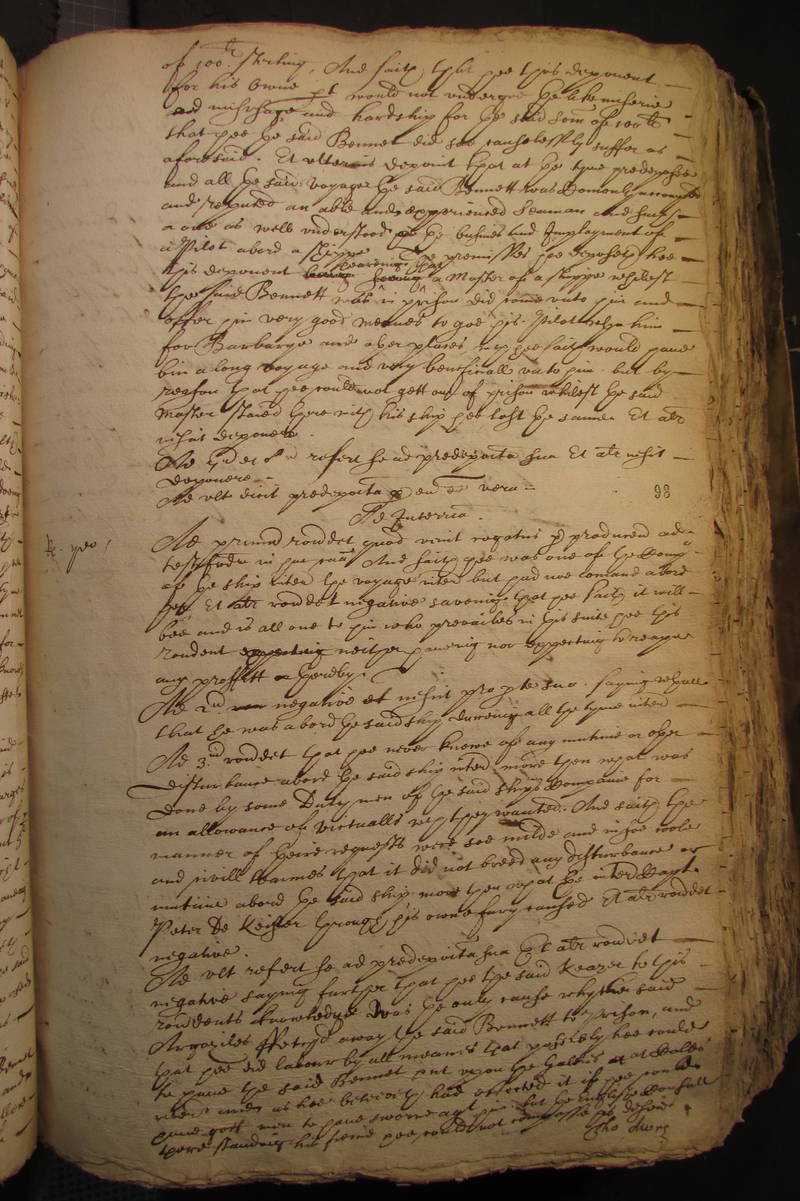 of 100 li sterling, And saith that hee this deponent
for his owne pt would not undergoe the like miserie
and misusage and hardship for the said som of 100 li
that hee the said Bennet did soe causelessly suffer as
aforesaid. Et ulterius deponit that at the tyme predeposed
and all the said voyage the said Bennett was Comonly accompted
and reputed an able and experienced Seaman and such
a one as well understood the busines and Imployment of
a Pilot abord a shippe
this deponent hearing that a Master of a shippe whilest
the said Bennett was in prison did come unto him and
offer him very good meanes to goe his Pilot with him
for Barbarye and other places wch hee saith would have
bin a long voyage and very beneficiall unto him but by
reason that hee could not gett out of prison whilest the said
Master staied there with his ship hee lost the same Et alr
nescit deponere.
Ad refert se ad predeposita sua Et alr nescit
deponere.
Ad ult dicit predeposita p eum esse vera
98
Ad Interria.
R. yeo
Ad primum rondet quod venit rogatus p producend ad
testificand in hac causa And saith hee was one of the Compa
of the ship interr the voyage interr but had noe comand abord
her Et alr rondet negative saveing that hee saith it will
bee and is all one to him who prevailes in this suite hee this
rondent neither haveing nor expecting to reape
any proffitt thereby.
Ad 2nd negative et nescit pro pte sua saying
that he was abord the said ship dureing all the tyme interr
Ad 3nd rondet that hee never knowe of any mutinie or other
disturbance abord the said ship interr more then what was
done by some Duty men of the said ships Companie for
an allowance of victualls wch they wanted. And saith the
manner of theire requests were soe milde and in soe
and civill tearmes that it did not breed any disturbance or
mutinie abord the said ship more then what the interr Capt.
Peter De Keiser through his owne fury caused Et alr rondet
negative.
Ad ult refert se ad predeposita sua Et alr rondet
negative saying further that hee the said Keazer to this
rondents knowledge was the only cause why the said
away the said Bennett to prison, and
that hee did labour by all meanes that possibly hee could
to have the said Bennet put upon the Gallies at
and as hee beleeveth had effected it if hee could
have gott men to have sworne agt him but the
there standing his friend hee could not his desire